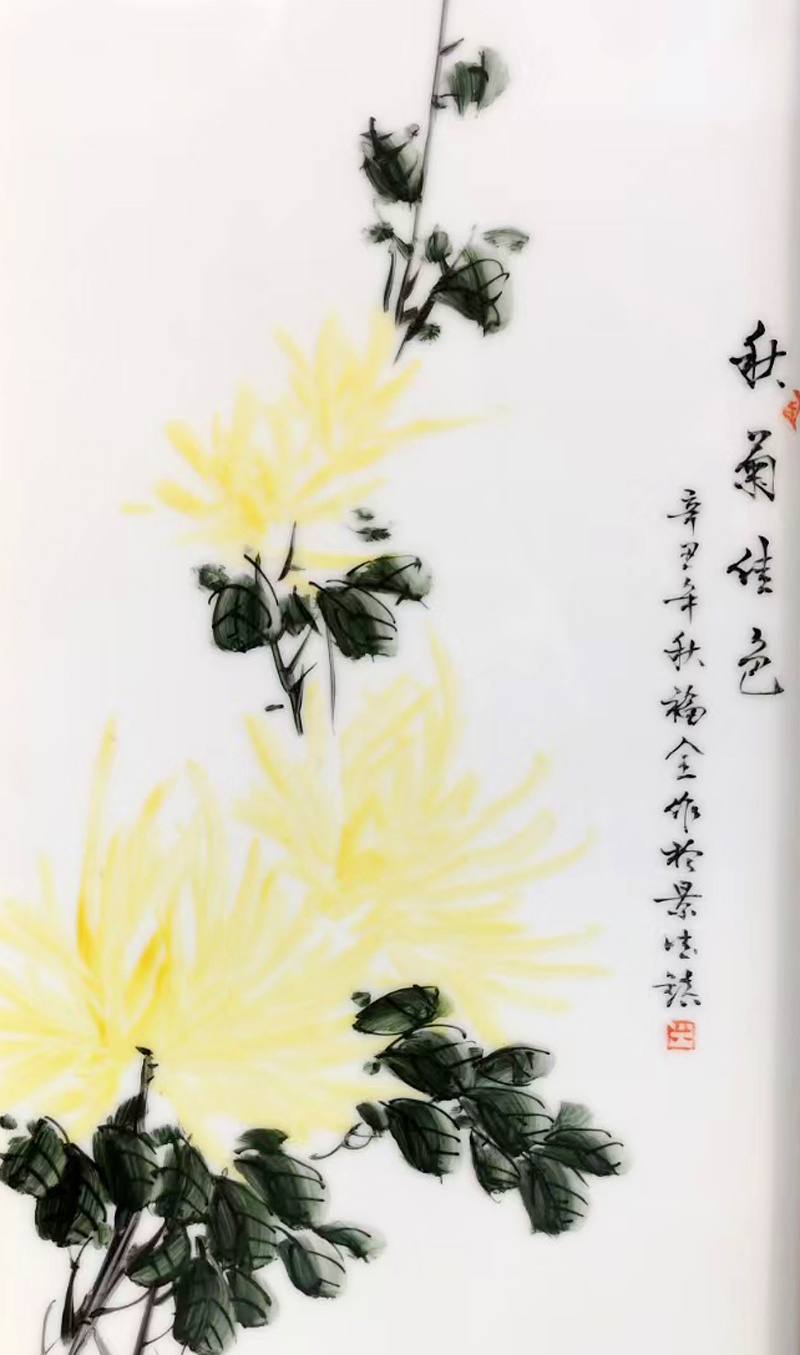 秋菊佳色
辛丑年秋福全作於景德鎮